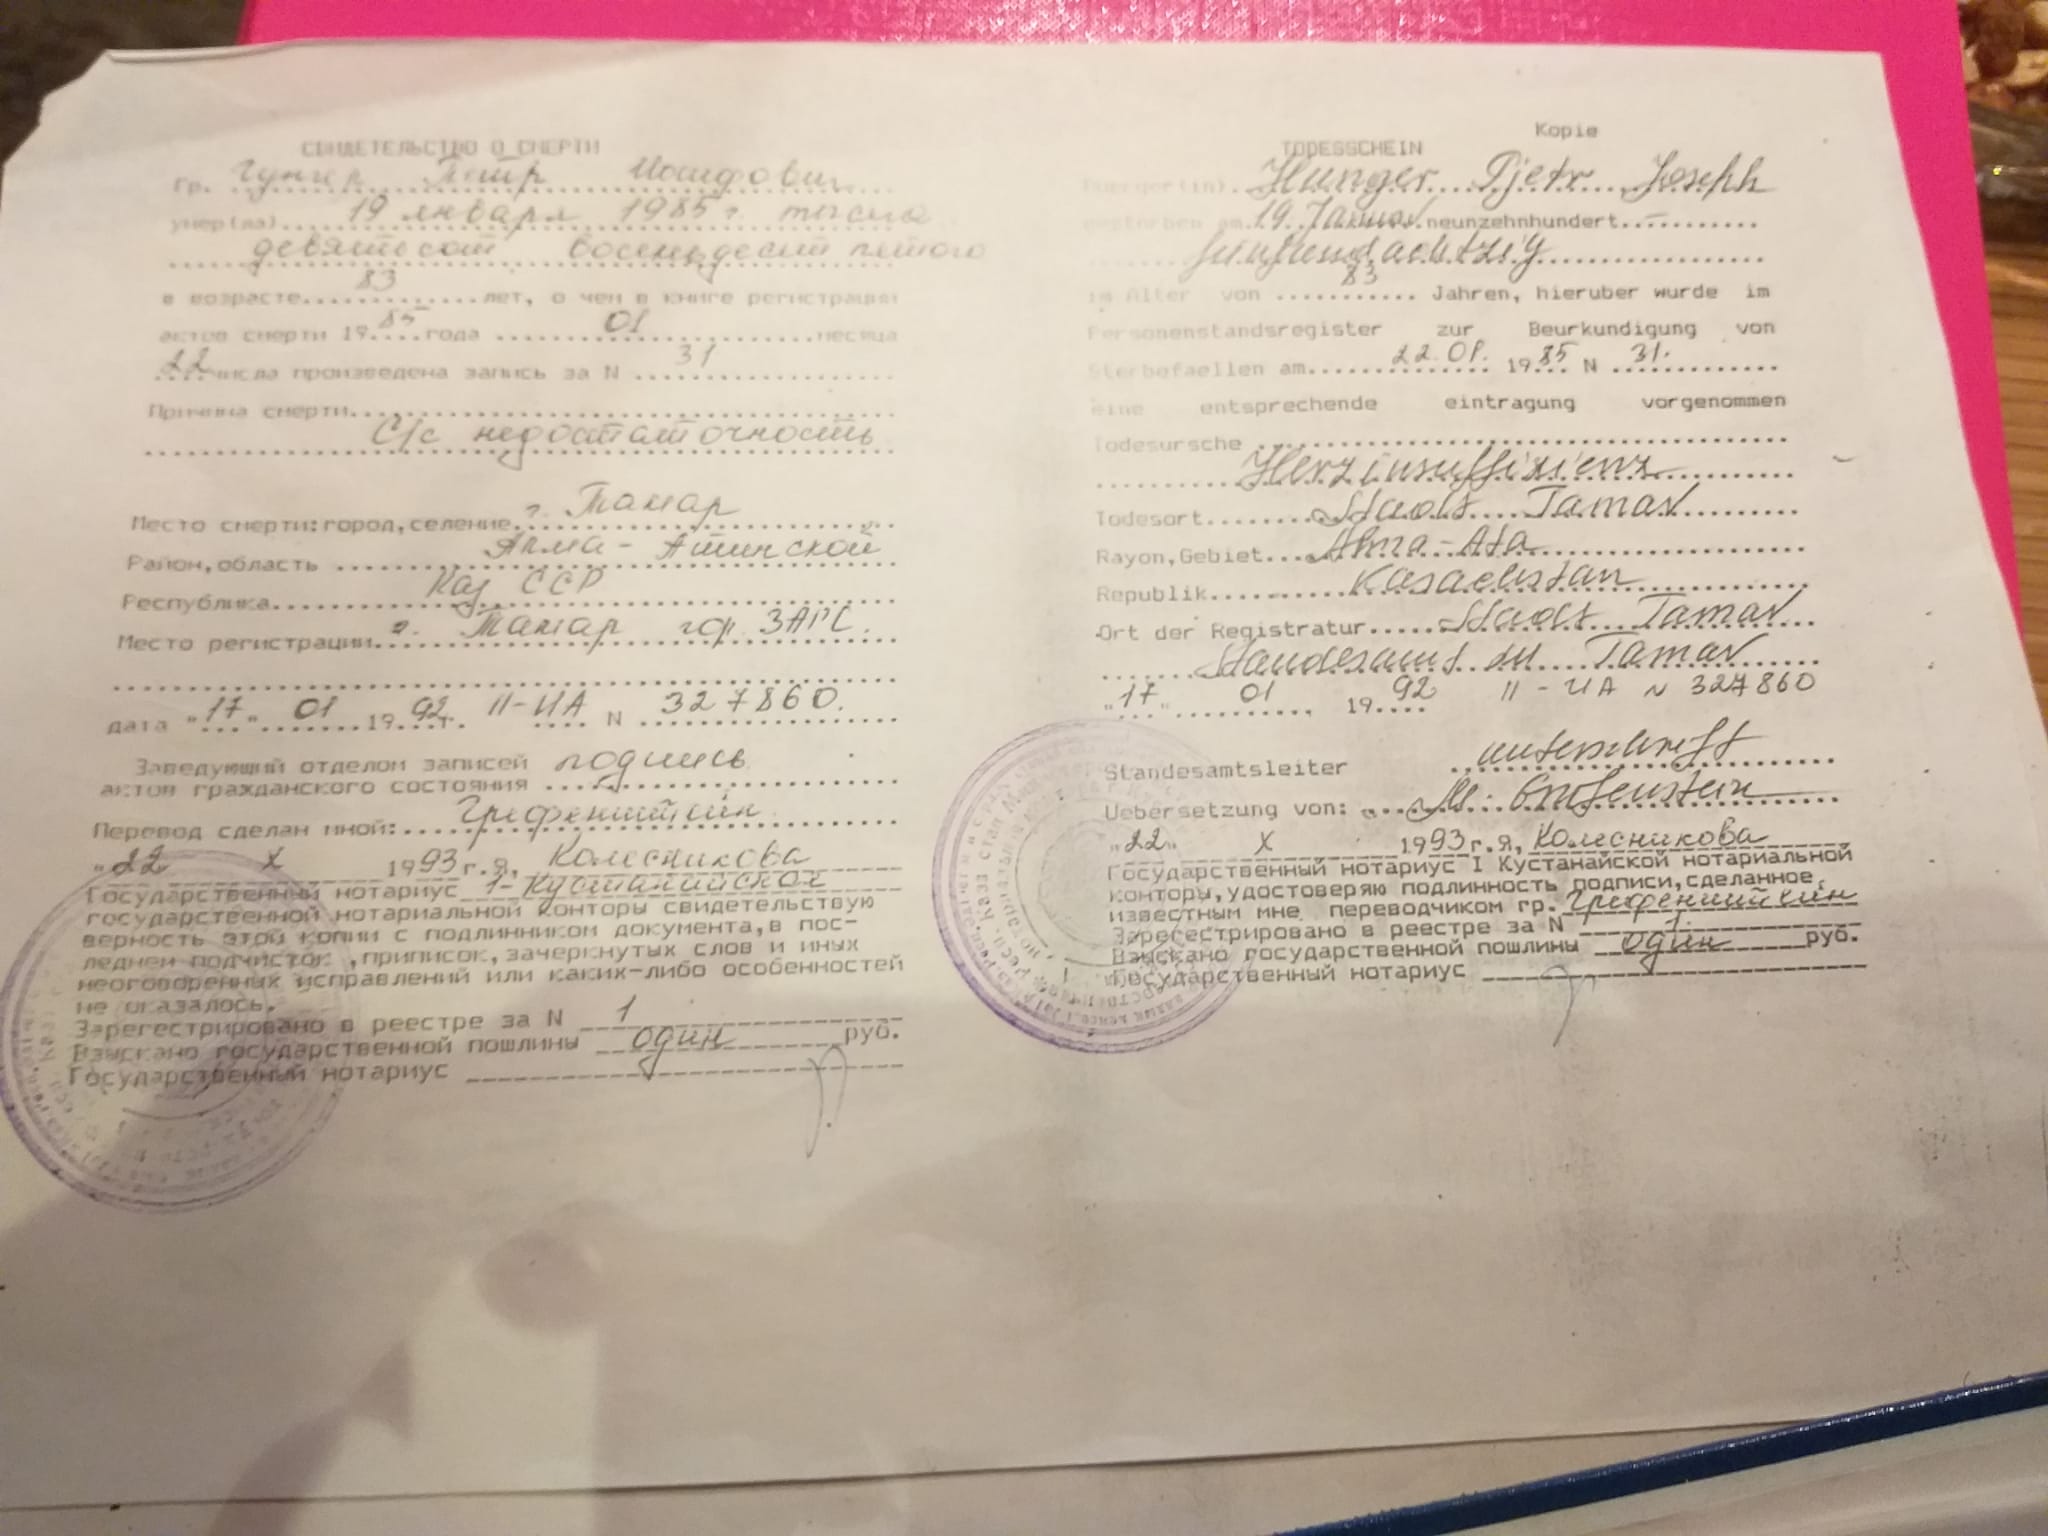 СВИДЕТЕЛЬСТВО О СМЕРТИ
Гр. Гунгер Петр Иосифович
умер(ла) 19 января 1985 г. тысяча
девятьсот восемьдесят пятого
в возрасте 83 лет, о чем в книге регистрации
актов смерти 19 85 года 01 месяца
22 числа произведена запись за N 31
Причина смерти
С/с недостаточность
Место смерти: город, селение г. Талгар
Район, область Алма-Атинской
Республика Каз ССР
Место регистрации г. Талгар гор. ЗАГС.
дата "17" 01 19 92 г. II-ИА N 327860.
Заведующий отделом записей подпись
актов гражданского состояния
Перевод сделан мной: Грефенштейн
"22 X 1993 г. Я, Колесникова
Государственный нотариус 1-Кустанайской
государственной нотариальной конторы свидетельствую
верность этой копии с подлинником документа, в пос-
леднем подчисток, приписок, зачеркнутых слов и иных
неоговоренных исправлений или каких-либо особенностей
не оказалось.
Зарегестрировано в реестре за N 1
Взыскано государственной пошлины один руб.
Государственный нотариус
Kopie
TODESSCHEIN
Buerger(in) Hunger Pjetr Joseph
gestorben am 19. Januar neunzehnhundert
fünfundachtzig
im Alter von 83 Jahren, hieruber wurde im
Personenstandsregister zur Beurkundigung von
Sterbefaellen am 22.01. 19 85 N 31.
eine entsprechende eintragung vorgenommen
Todesursche
Herzinsuffizienz
Todesort Stadt Talgar
Rayon, Gebiet Alma-Ata
Republik Kasachstan
Ort der Registratur Stadt Talgar
Standesamt zu Talgar
"17" 01 19 92 II-ИА N 327860
Standesamtsleiter unterschrift
Uebersetzung von: Grefenstein
"22" X 1993 г. Я, Колесникова
Государственный нотариус I Кустанайской нотариальной
конторы, удостоверяю подлинность подписи, сделанное
известным мне переводчиком гр. Грефенштейн
Зарегестрировано в реестре за N 1
Взыскано государственной пошлины один руб.
Государственный нотариус